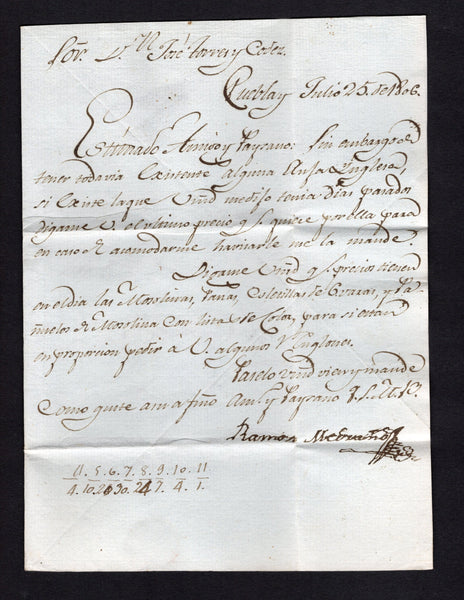 Sor. Dn. José Torres y
Puebla y Julio 25. de 1806.
Estimado Amigo y Paysano: Sin embargo de
tener todavia existente alguna Ansa Ynglesa,
si existe la que Vmd me dijo tenia dias pasados
Digame V. el ultimo precio q. quiere por ella para
en caso de acomodarme havisarle me la mande.
Digame Vmd q. precios tienen
en el dia las Muselinas, Panas, Cotonillas de
de Muselina con lista de Color, para si estan
en proporcion pedir á V. algunos Renglones.
Paselo Vmd bien y mande
como guste a su afmo Amo. y Paysano Q. S. M. B.
Ramon Medrano
11. 5. 6. 7. 8. 9. 10. 11
4. 10. 20 30. 24 7. 4. 1.